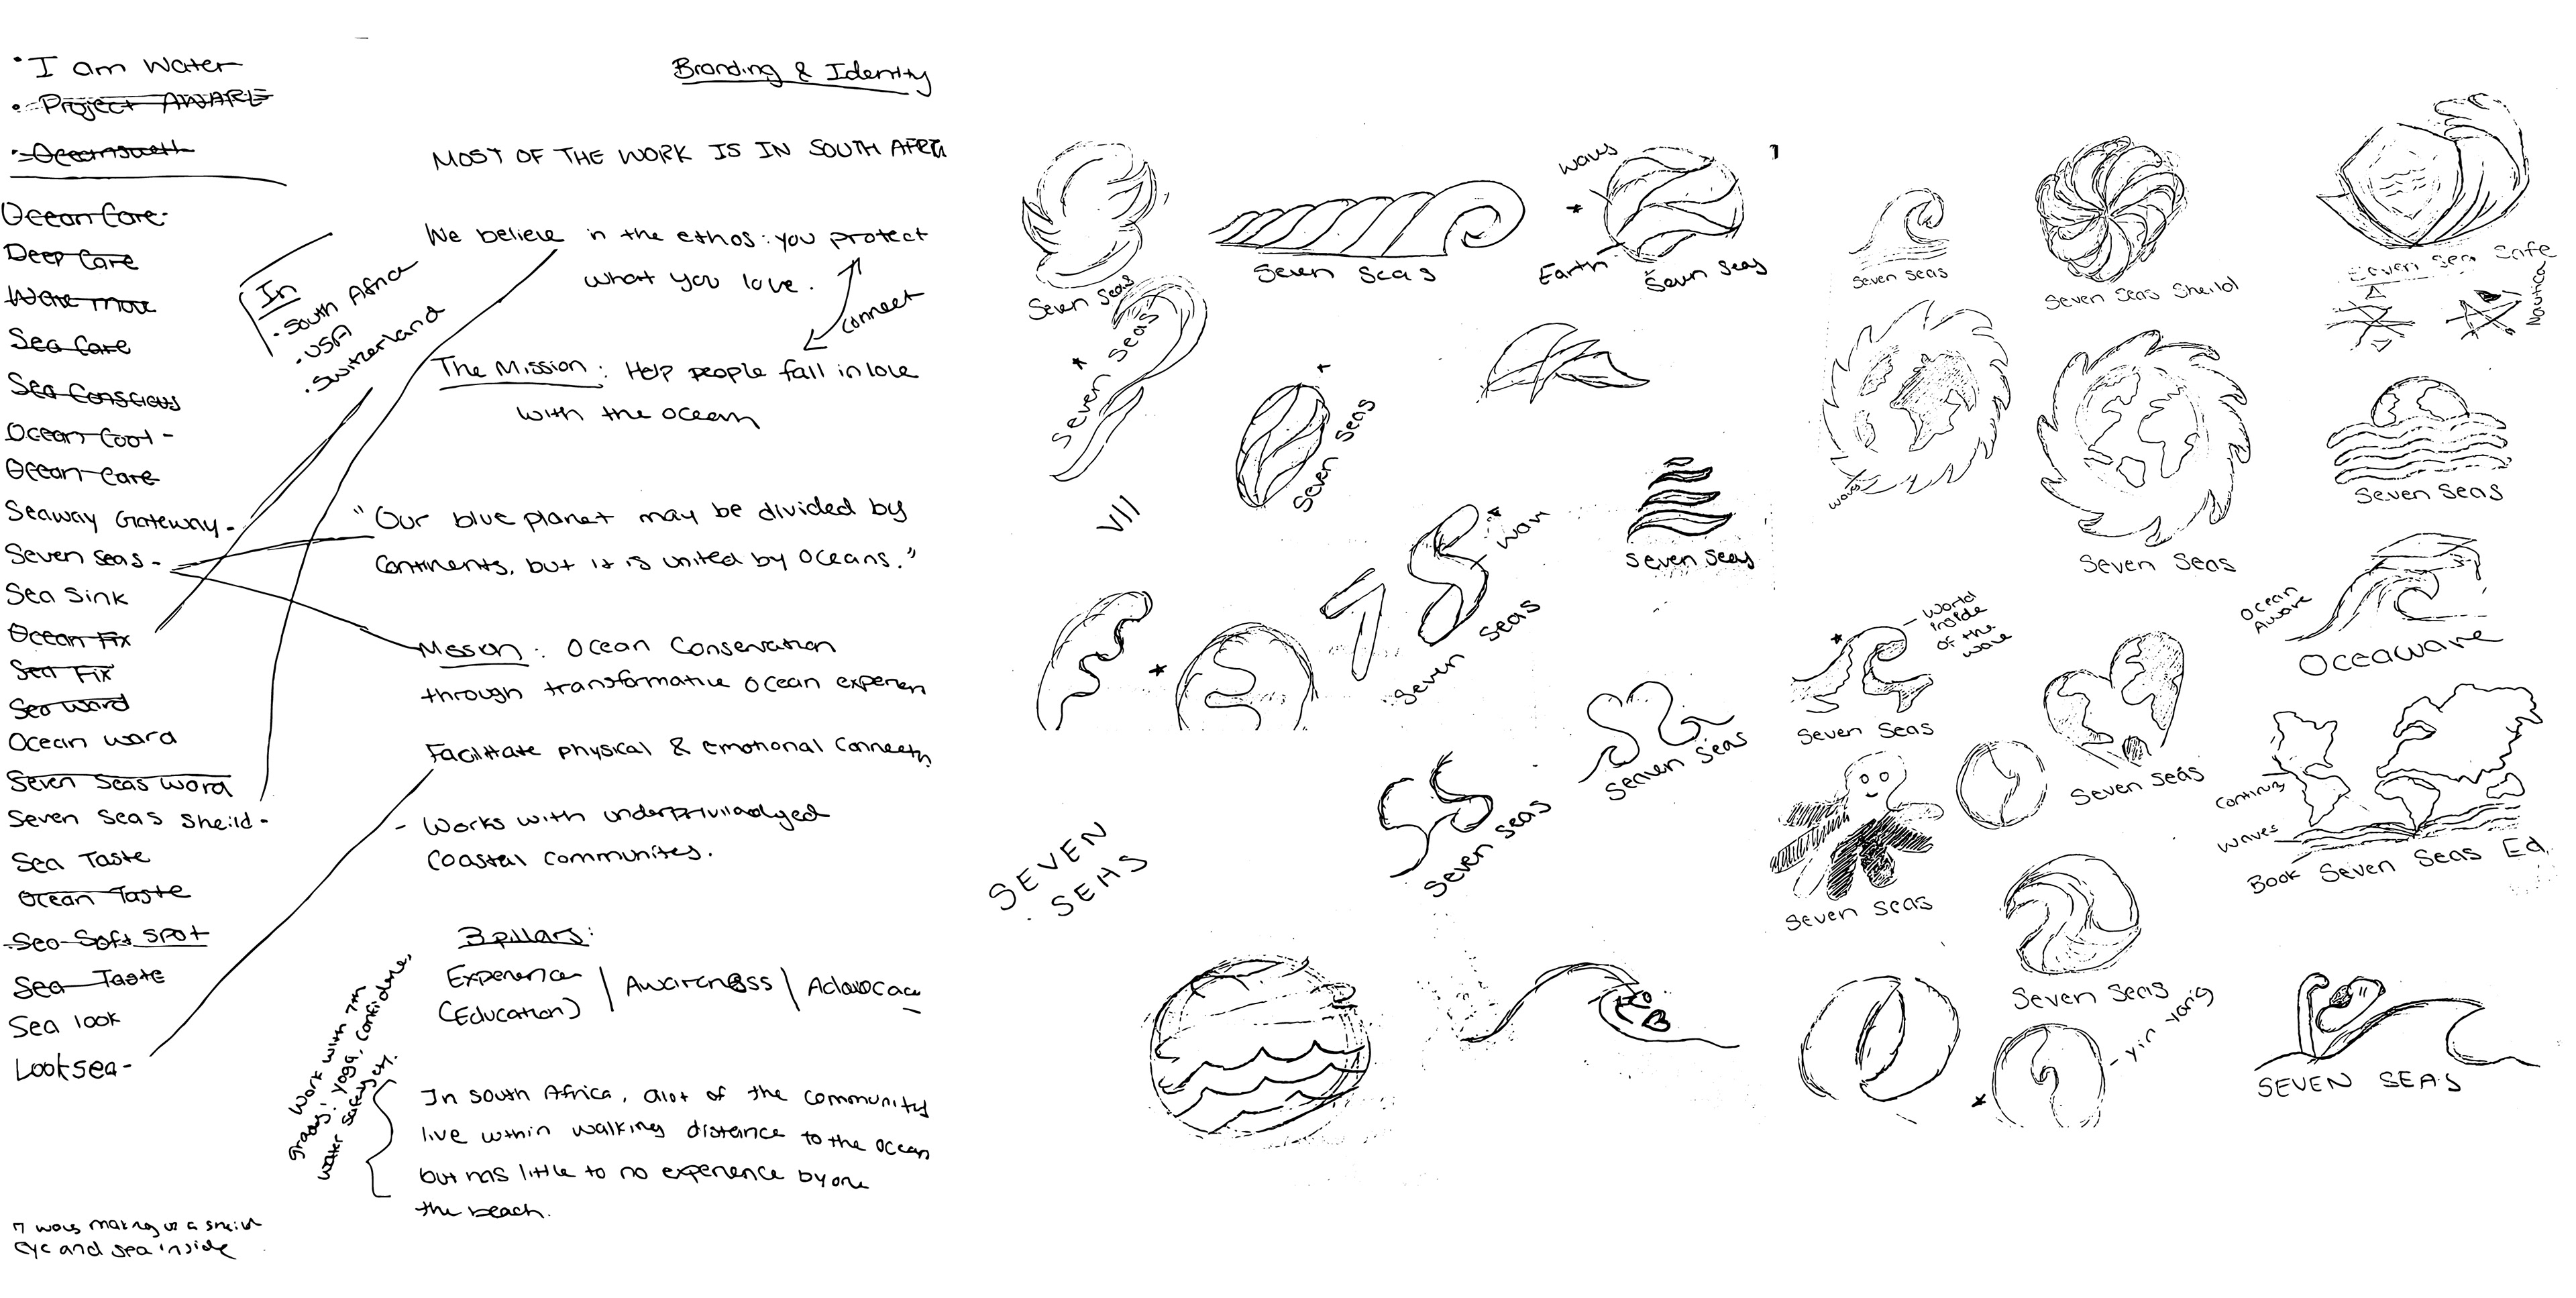 I am Water
Project AWARE
Ocean Care
Deep Care
Wave move
Sea Care
Sea Conscious
Ocean Cool -
Ocean Care
Seaway Gateway -
Seven Seas -
Sea Sink
Ocean Fix
Sea Fix
Sea ward
Ocean ward
Seven Seas ward
Seven Seas Sheild -
Sea Taste
Ocean Taste
Sea Soft spot
Sea Taste
Sea look
Looksea -
7 waves making up a sheild
eye and sea inside
Branding & Identity
MOST OF THE WORK IS IN SOUTH AFRICA
We believe in the ethos: you protect
what you love.
connect
In
. South Africa
. USA
. Switzerland
The Mission: Help people fall in love
with the ocean
"Our blue planet may be divided by
Continents, but it is united by oceans."
Mission: Ocean Conservation
through transformative ocean experien
Facilitate physical & emotional connectn
- Works with underpriviladged
Coastal communites.
3 pillars:
Experience | Awareness | Advocacy
(Education)
Work with 7th
grades! yoga, confidence,
water safety
In south Africa, alot of the community
live within walking distance to the ocean
but has little to no experience by
the beach.
Seven Seas
Seven Seas
waves
Earth
Seven Seas
Seven Seas
Seven Seas
VII
Seven Seas
Seven Seas
wave
Seven Seas
SEVEN
SEAS
Seven Seas
Seven Seas
Seven Seas
Seven Seas Sheild
Seven Sea Safe
Nautical
waves
Seven Seas
Seven Seas
World
inside
of the
wave
Seven Seas
Ocean
Aware
Oceaware
Seven Seas
Seven Seas
Continents
waves
Book Seven Seas Ed.
Seven Seas
- yin yang
SEVEN SEAS